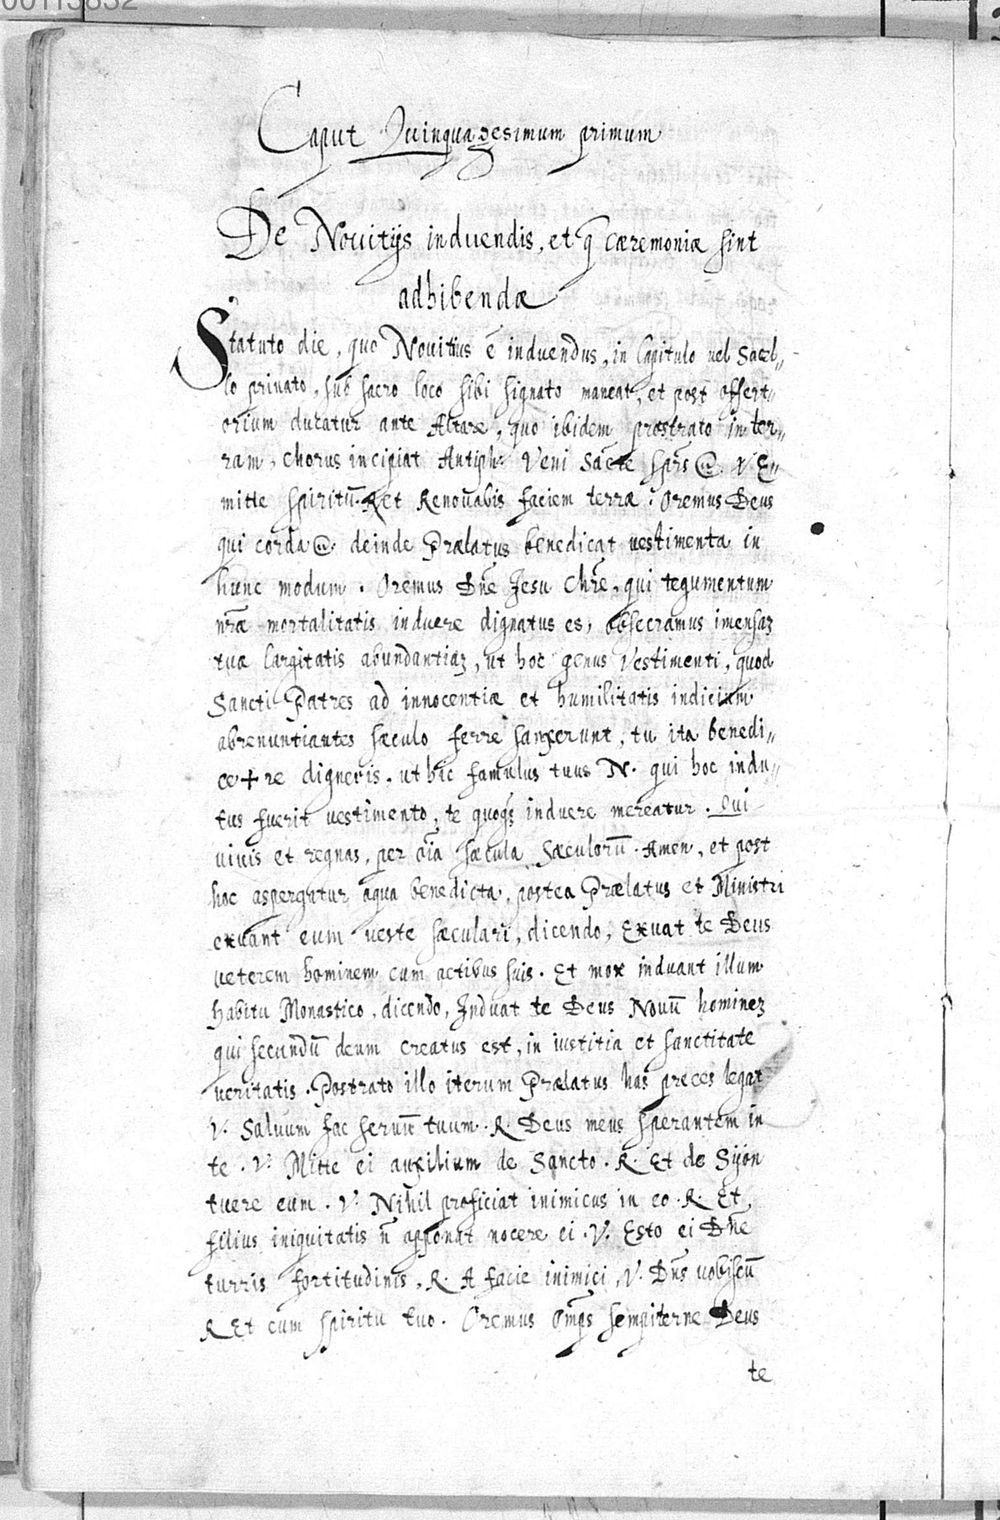 00113832
Caput Quinquagesimum primum
De Nouitijs induendis, et q̃ cæremoniæ sint
adhibendæ
Statuto die, quo Nouitius ẽ induendus, in Capitulo uel Sacel„
lo priuato, sub sacro loco sibi signato maneat, et post offert„
orium ducatur ante Altare, quo ibidem prostrato in ter„
ram, chorus incipiat Antiph: Veni Sãcte Spr̃s @. V E„
mitte spiritũ. R et Renouabis faciem terræ: Oremus Deus
qui corda @. deinde Prælatus benedicat uestimenta in
hunc modum. Oremus Dñe Jesu Chr̃e, qui tegumentum
nr̃æ mortalitatis induere dignatus es, obsecramus imensaʒ
tuæ largitatis abundantiaʒ, ut hoc genus Vestimenti, quod
Sancti Patres ad innocentiæ et humilitatis indicium
abrenuntiantes sæculo ferre sanxerunt, tu ita benedi„
ce + re digneris, ut hic famulus tuus N. qui hoc indu„
tus fuerit uestimento, te quoqȝ induere mereatur. Qui
uiuis et regnas, per oĩa sæcula sæculorũ. Amen, et post
hoc aspergatur aqua benedicta, postea Prælatus et Ministri
exuant eum ueste sæculari, dicendo, Exuat te Deus
ueterem hominem cum actibus suis. Et mox induant illum
habitu Monastico, dicendo, Induat te Deus Nouũ homineʒ
qui secundũ deum creatus est, in iustitia et sanctitate
ueritatis. Postrato illo iterum Prælatus has preces legat
V. Saluum fac seruũ tuum. R. Deus meus sperantem in
te. V. Mitte ei auxilium de Sancto. R. Et de Syon
tuere eum. V. Nihil proficiat inimicus in eo. R. Et
filius iniquitatis ñ apponat nocere ei. V. Esto ei Dñe
turris fortitudinis, R. A facie inimici, V. Dñs uobiscũ
R Et cum spiritu tuo. Oremus Omp̃s sempiterne Deus
te